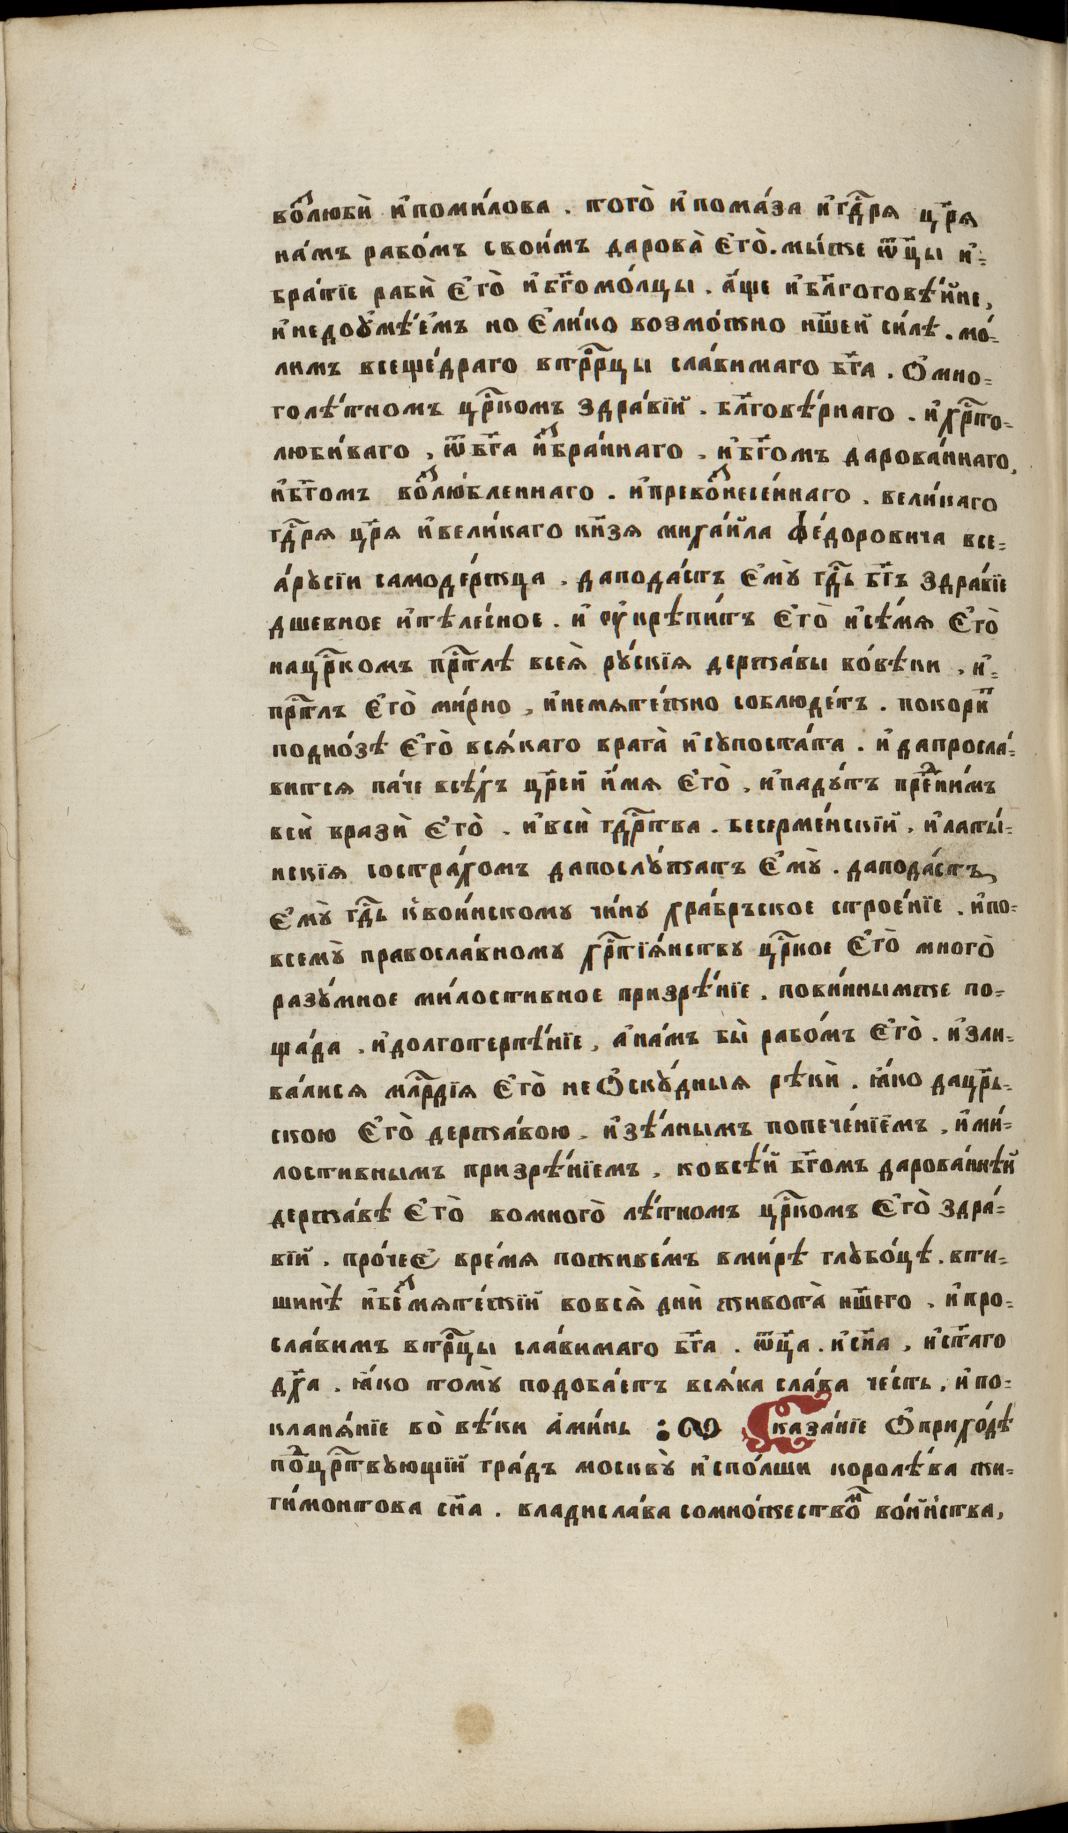 во́злюби̇̀ и҆ поми́лова . того̀ и҆ пома́за и҆ гдⷭ҇ря цр҃я
на́мъ рабо́мъ свои́мъ дарова̀ є҆го̀. мы́же ѿц҃ы и҆-
бра́тїе раби̇̀ є҆го̀ и҆ бг҃омо́лцы . а҆́ще и҆ бл҃гоговѣ́йне,
и҆ недоꙋмѣ́ємъ но є҆ли́ко возмо́жно нш҃ей си́лѣ . мо́-
лимъ всеще́драго втрⷪ҇рцы сла́вимаго бг҃а . Ѻ҆ мно-
голѣ́тномъ црⷭ҇комъ здра́вїй . бл҃говѣ́рнаго . и҆ хрⷭ҇то-
люби́ваго , ѿ бг҃а и҆збра́ннаго . и҆ бг҃омъ дарова́ннаго,
и҆ бг҃омъ возлю́бленнаго . и҆ превознесе́ннаго . вели́каго
гдⷭ҇ря цр҃я и҆ вели́каго кн҃зя миха́йла ѳе́доровича все-
а́русїи самоде́ржца . да пода́стъ є҆мꙋ̀ гдⷭ҇ь бг҃ъ здра́вїе
дш҃евное и҆ тѣле́сное . и҆ оу҆крѣпи́тъ є҆го̀ и҆ сѣ́мя є҆го̀
на црⷭ҇комъ прⷭ҇тлѣ всея̀ рꙋ́скїя держа́вы во́вѣки , и҆-
прⷭ҇тлъ є҆го̀ ми́рно , и҆ немяте́жно соблюде́тъ . покори́тⷤ
под но́зѣ є҆го̀ вся́каго врага̀ и҆ сꙋпоста́та . и҆ да просла́-
вится па́че всѣ́хъ цр҃ей и҆́мя є҆го̀ , и҆ падꙋ́тъ преⷣ ни́мъ
всѝ вразѝ є҆го̀ . и҆ всѝ гдⷭ҇рства . бесерме́нскїй , и҆ латы́-
нскїя со стра́хомъ да послꙋ́жатъ є҆мꙋ̀ . да пода́стъ
є҆мꙋ̀ гдⷭ҇ь к вои́нскому чи́нꙋ хра́бръское строе́нїе . и҆ по-
всемꙋ̀ правосла́вному хрⷭ҇тїя́нству црⷭ҇кое є҆го̀ много̀
разꙋ́мное ми́лостивное призрѣ́нїе . пови́ннымже по-
ща́да , и҆ долготерпѣ́нїе , а҆ на́мъ бы̀ рабо́мъ є҆го̀ . и҆зли-
ва́лися млрⷭ҇дїя є҆го̀ не Ѻ҆скꙋ́дныя рѣкѝ . ꙗ҆́ко да црⷭ҇ь-
скою є҆го̀ держа́вою . и҆ зѣ́лнымъ попече́нїемъ , и҆ ми́-
лостивнымъ призрѣ́нїемъ , ко всѣ́й бг҃омъ дарова́ннѣй
держа́вѣ є҆го̀ во много̀ лѣ́тномъ црⷭ҇комъ є҆го̀ здра́-
вїй . про́чеє вре́мя поживе́мъ в ми́рѣ глꙋбо́цѣ . в ти-
шинѣ̀ и҆ безмяте́жїй во вся̀ дни̇̀ живота̀ нш҃его . и҆ про-
сла́вимъ втрⷪ҇цы сла́вимаго бг҃а . ѿц҃а . и҆ сн҃а , и҆ ст҃аго
дх҃а . ꙗ҆́ко томꙋ̀ подоба́етъ вся́ка сла́ва че́сть , и҆ по-
кланя́нїе во̀ вѣ́ки а҆ми́нь : Сказа́нїе Ѻ҆ прихо́дѣ
поⷣцрⷭ҇твующїй гра́дъ москвꙋ̀ и҆с по́лши королѣ́ва жи-
ги́монтова сн҃а . владисла́ва со мно́жествоⷨ во́ийства,